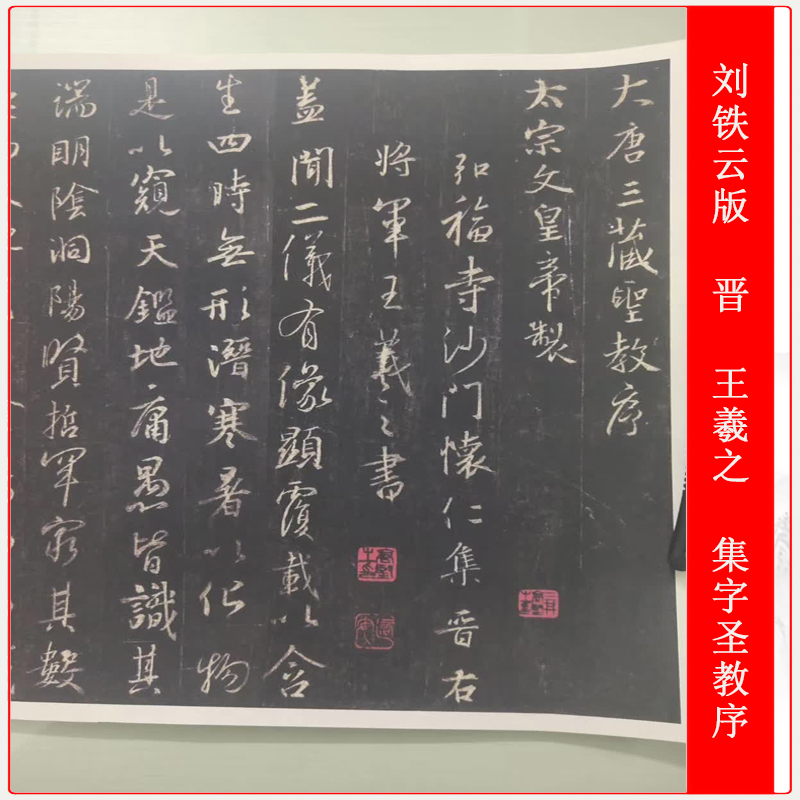 刘铁云版 晋 王羲之 集字圣教序
大唐三藏聖教序
太宗文皇帝製
弘福寺沙門懷仁集晉右
將軍王羲之書
蓋聞二儀有像顯覆載以含
生四時無形潛寒暑以化物
是以窺天鑑地庸愚皆識其
端明陰洞陽賢哲罕窮其數